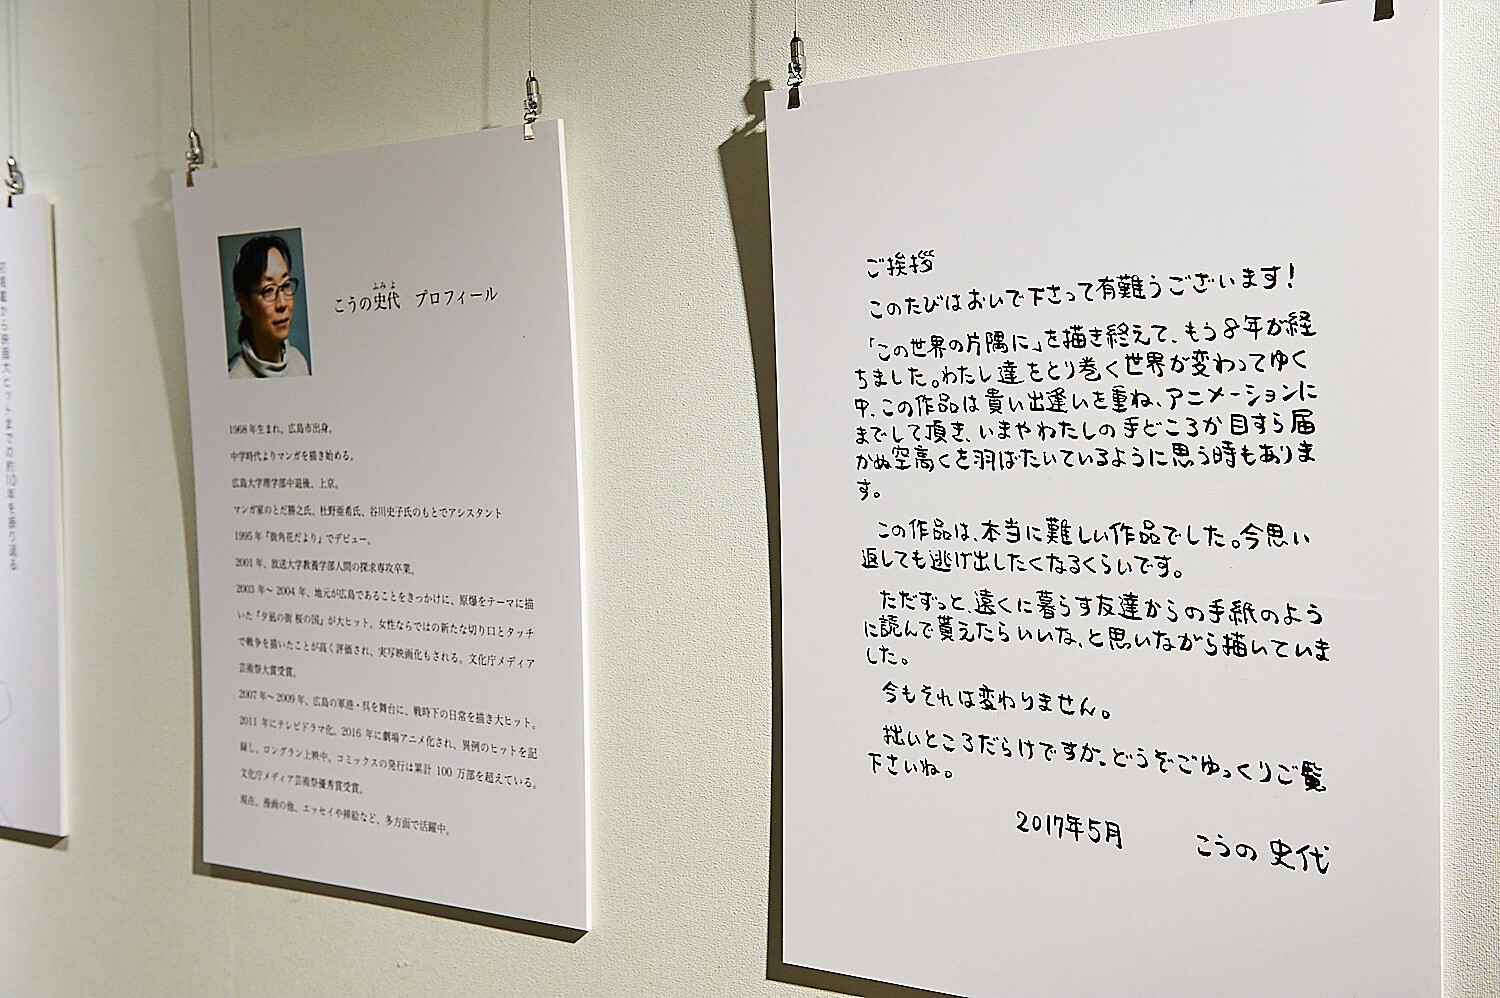 初掲載から映画大ヒットまでの約10年を振り返る
ふみよ
こうの史代 プロフィール
1968年生まれ。広島市出身。
中学時代よりマンガを描き始める。
広島大学理学部中退後、上京。
マンガ家のとだ勝之氏、杜野亜希氏、谷川史子氏のもとでアシスタント
1995年『街角花だより』でデビュー。
2001年、放送大学教養学部人間の探求専攻卒業。
2003年〜2004年、地元が広島であることをきっかけに、原爆をテーマに描
いた『夕凪の街 桜の国』が大ヒット。女性ならではの新たな切り口とタッチ
で戦争を描いたことが高く評価され、実写映画化もされる。文化庁メディア
芸術祭大賞受賞。
2007年〜2009年、広島の軍港・呉を舞台に、戦時下の日常を描き大ヒット。
2011年にテレビドラマ化。2016年に劇場アニメ化され、異例のヒットを記
録し、ロングラン上映中。コミックスの発行は累計100万部を超えている。
文化庁メディア芸術祭優秀賞受賞。
現在、漫画の他、エッセイや挿絵など、多方面で活躍中。
ご挨拶
このたびはおいで下さって有難うございます!
「この世界の片隅に」を描き終えて、もう8年が経
ちました。わたし達をとり巻く世界が変わってゆく
中、この作品は貴い出逢いを重ね、アニメーションに
までして頂き、いまやわたしの手どころか目すら届
かぬ空高くを羽ばたいているように思う時もありま
す。
この作品は、本当に難しい作品でした。今思い
返しても逃げ出したくなるくらいです。
ただずっと、遠くに暮らす友達からの手紙のよう
に読んで貰えたらいいな、と思いながら描いていま
した。
今もそれは変わりません。
拙いところだらけですが、どうぞごゆっくりご覧
下さいね。
2017年5月 こうの史代